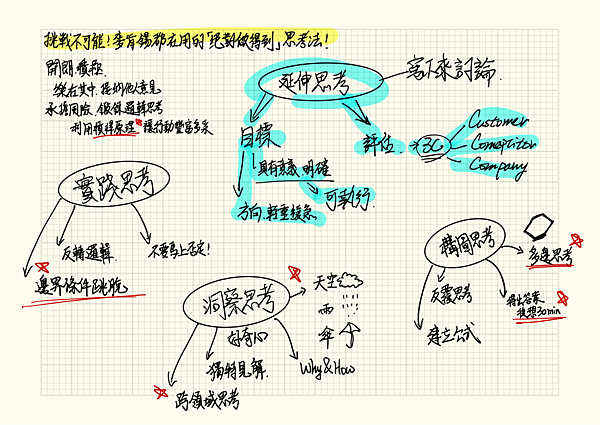 挑戰不可能!麥肯錫都在用的「絕對做得到」思考法!
開朗積極.
樂在其中 提出個人意見
承擔風險. 鍛鍊邏輯思考
利用模得原理 讓行動豐富多采
延伸思考
寫下來討論.
目標
評估.
3C
Customer
Comepitor
Company
具有意義 明確
方向.輕重緩急
可執行
實踐思考
反轉邏輯.
不要馬上否定!
邊界條件跳脫
洞察思考
天空
雨
傘
好奇心
獨特見解.
Why&How
跨領域思考
構圖思考
多邊思考
反覆思考
得出答案
我想30min
建立公式